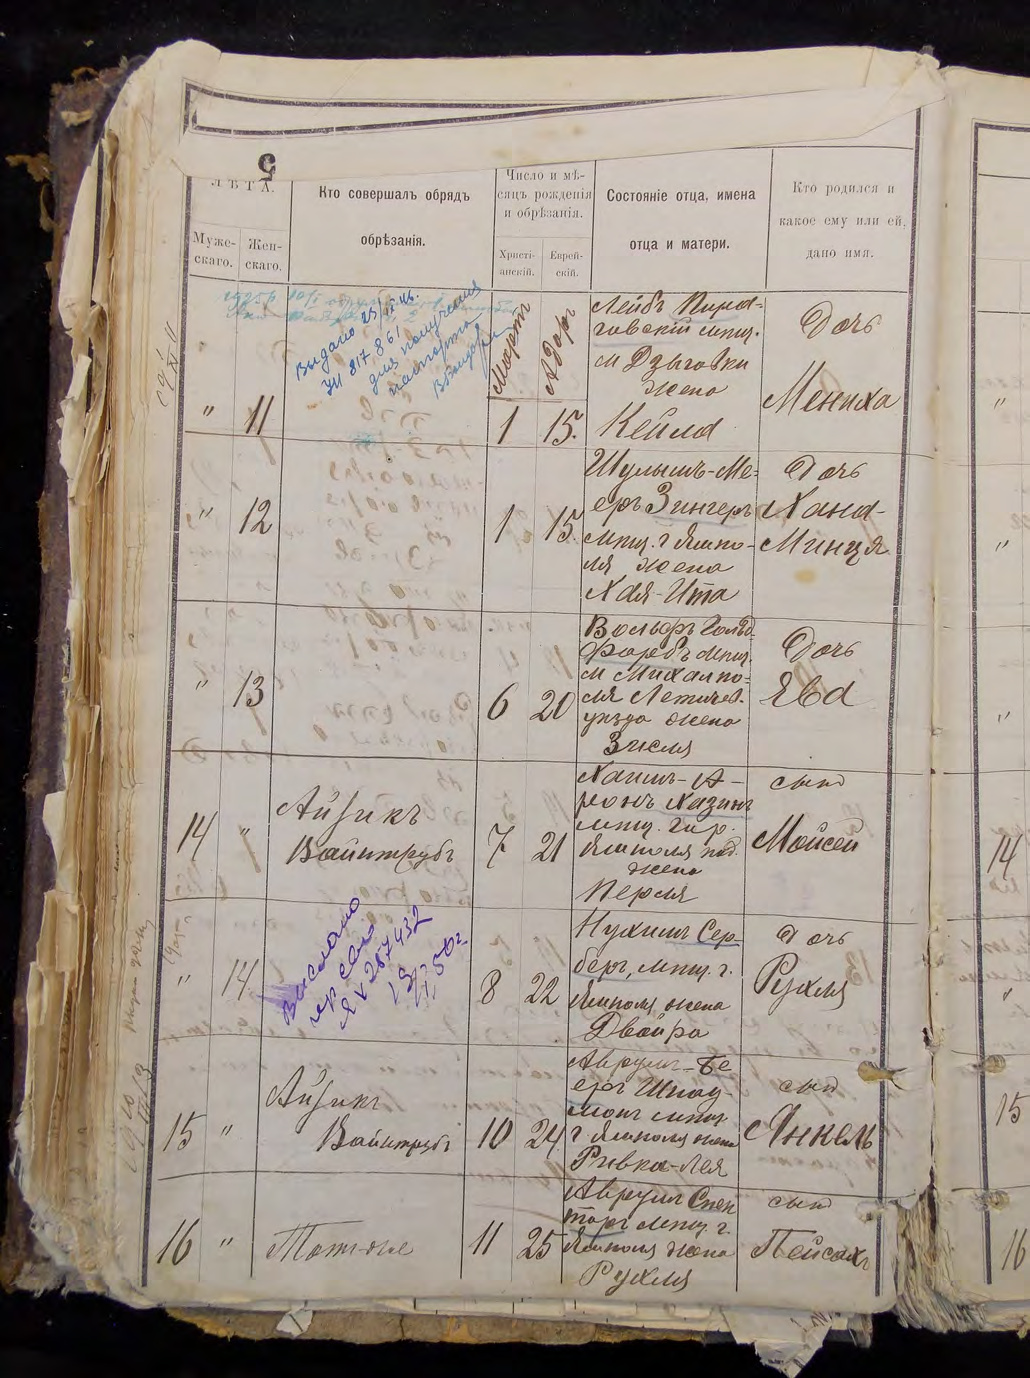 5
ЛѢТА.
Муже-
скаго.
Жен-
скаго.
Кто совершалъ обрядъ
обрѣзанія.
Число и мѣ-
сяцъ рожденія
и обрѣзанія.
Христі-
анскій.
Еврей-
скій.
Состояніе отца, имена
отца и матери.
Кто родился и
какое ему или ей.
дано имя.
Выдано 25
УИ 817861
для получения
паспорта
Мартъ
Адоръ
" 11
1 15.
Лейбъ Пиро-
говскій мѣщ.
м Дзыговки
жена
Кейла
Дочь
Мениха
" 12
1 15.
Шулымъ-Ме-
еръ Зингеръ
мѣщ. г Ямпо-
ля жена
Хая-Ита
Дочь
Хана-
Минця
" 13
6 20
Вольфъ Гольд-
фарбъ мѣщ.
м Михалпо-
ля Летичев.
уѣзда жена
Зисля
Дочь
Ева
14 "
Айзикъ
Вайнтрубъ
7 21
Хаимъ-А-
ронъ Хазинъ
мѣщ. гор.
Ямполя под.
жена
Перля
сынъ
Мойсей
" 14
Выслано
ЯV 287432
8 22
Нухимъ Сер-
бергъ, мѣщ. г.
Ямполя жена
Двойра
Дочь
Рухля
15 "
Айзикъ
Вайнтрубъ
10 24
Аврумъ-Бе-
еръ Шпау-
монъ мѣщ.
г Ямполя жена
Ривка-Лея
сынъ
Янкель
16 "
Тотъ-же
11 25
Аврумъ Спек-
торъ мѣщ. г.
Ямполя жена
Рухля
сынъ
Пейсахъ
"
"
"
14
"
15
16